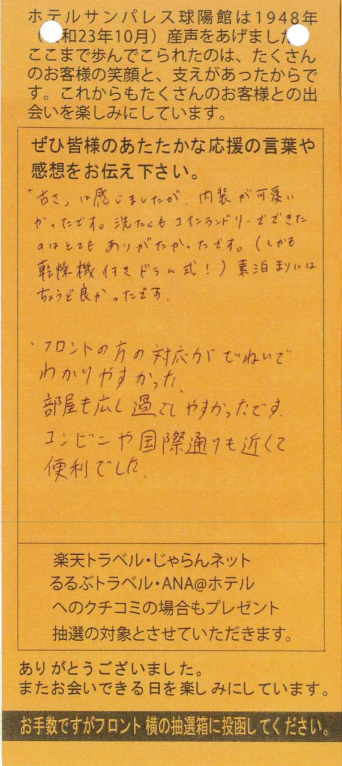 ホテルサンパレス球陽館は1948年
和23年10月）産声をあげました
ここまで歩んでこられたのは、たくさん
のお客様の笑顔と、支えがあったからで
す。これからもたくさんのお客様との出
会いを楽しみにしています。
ぜひ皆様のあたたかな応援の言葉や
感想をお伝え下さい。
「古さ」は感じましたが、内装が可愛い
かったです。洗たくもコインランドリーでできた
のはとても ありがたかったです。（しかも
乾燥機付きドラム式！）素泊まりには
ちょうど良かったです.
・フロントの方の対応がていねいで
わかりやすかった.
部屋も広く過ごしやすかったです.
コンビニや国際通りも近くて
便利でした.
楽天トラベル・じゃらんネット
るるぶトラベル・ANA@ホテル
へのクチコミの場合もプレゼント
抽選の対象とさせていただきます。
ありがとうございました。
またお会いできる日を楽しみにしています。
お手数ですがフロント横の抽選箱に投函してください。